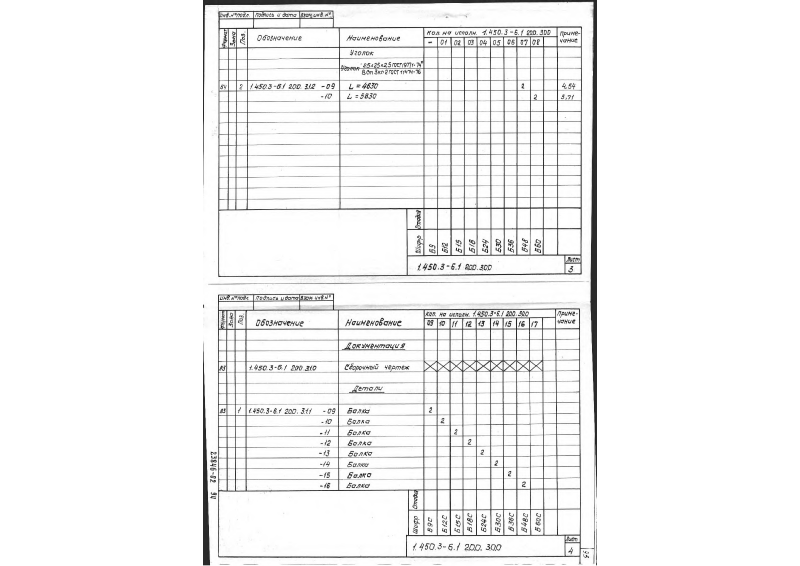 Инв.№подл. Подпись и дата Взам.инв.№
Формат Зона Поз. Обозначение Наименование Кол. на исполн. 1.450.3-6.1 200.300 Приме-чание
- 01 02 03 04 05 06 07 08
Уголок
Уголок
Б4 2 1.450.3-6.1 200.312 -09 L = 4630 2 4,54
-10 L = 5830 2 5,71
Шифр Стадия
Б9 Б12 Б15 Б18 Б24 Б30 Б36 Б48 Б60
1.450.3-6.1 200.300 Лист 3
Инв.№подл. Подпись и дата Взам.инв.№
Формат Зона Поз. Обозначение Наименование Кол. на исполн. 1.450.3-6.1 200.300 Приме-чание
09 10 11 12 13 14 15 16 17
Документация
1.450.3-6.1 200.310 Сборочный чертеж
Детали
1 1.450.3-6.1 200.311 -09 Балка 2
-10 Балка 2
-11 Балка 2
-12 Балка 2
-13 Балка 2
-14 Балка 2
-15 Балка 2
-16 Балка 2
Шифр Стадия
Б9С Б12С Б15С Б18С Б24С Б30С Б36С Б48С Б60С
1.450.3-6.1 200.300 Лист 4